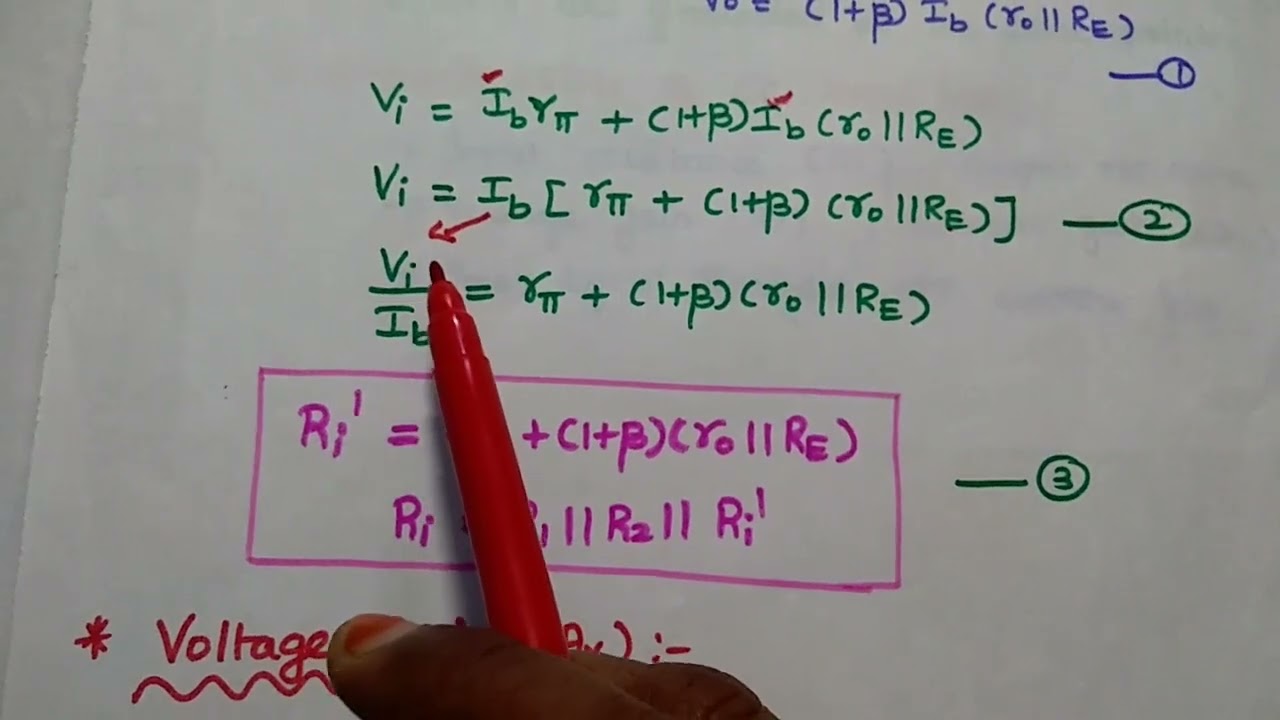 Vo = (1+β) Ib (ro || RE)
— ①
Vi = Ib rπ + (1+β) Ib (ro || RE)
Vi = Ib [ rπ + (1+β) (ro || RE) ] — ②
Vi / Ib = rπ + (1+β) (ro || RE)
Ri' = + (1+β) (ro || RE)
— ③
Ri || R2 || Ri'
* Voltage (Av) :-